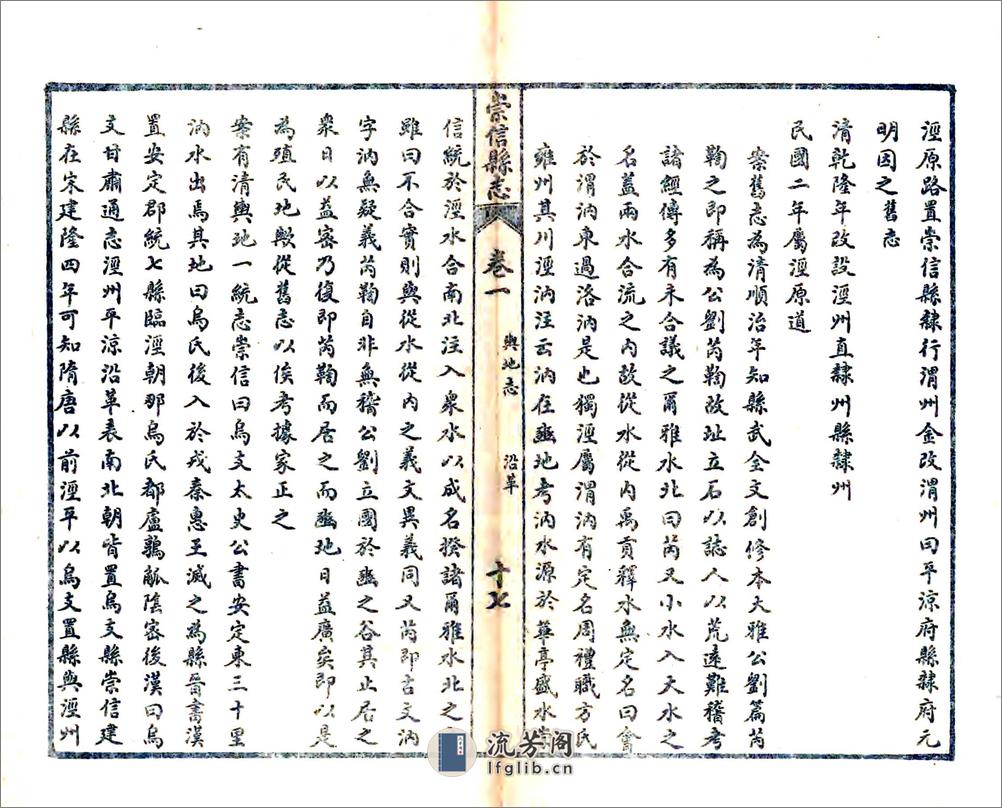 涇原路置崇信縣隸行渭州金改渭州曰平涼府縣隸府元
明因之舊志
清乾隆年改設涇州直隸州縣隸州
民國二年屬涇原道
案舊志為清順治年知縣武全文創修本大雅公劉篇芮
鞫之即稱為公劉芮鞫故址立石以誌人以荒遠難稽考
諸經傳多有未合議之爾雅水北曰芮又小水入大水之
名蓋兩水合流之內故從水從內禹貢釋水無定名曰會
於渭汭東過洛汭是也獨涇屬渭汭有定名周禮職方氏
雍州其川涇汭注云汭在豳地考汭水源於華亭盛水
崇信縣志
卷一
輿地志
沿革
十七
信統於涇水合南北注入衆水以成名揆諸爾雅水北之
雖曰不合實則與從水從內之義文異義同又芮即古文汭
字汭無疑義芮鞫自非無稽公劉立國於豳之谷其止居之
衆日以益密乃復即芮鞫而居之而豳地日益廣矣即以是
為殖民地歟從舊志以俟考據家正之
案有清輿地一統志崇信曰烏支太史公書安定東三十里
汭水出焉其地曰烏氏後入於戎秦惠王滅之為縣晉書漢
置安定郡統七縣臨涇朝那烏氏都盧鶉觚陰密後漢曰烏
支甘肅通志涇州平涼沿革表南北朝皆置烏支縣崇信建
縣在宋建隆四年可知隋唐以前涇平以烏支置縣與涇州
流芳阁
lfglib.cn